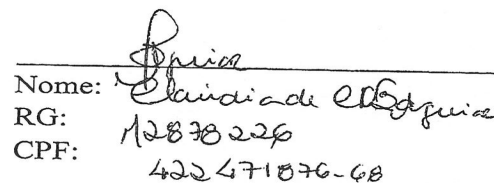 Nome: Claudia de
RG: 12878226
CPF: 422471876-68